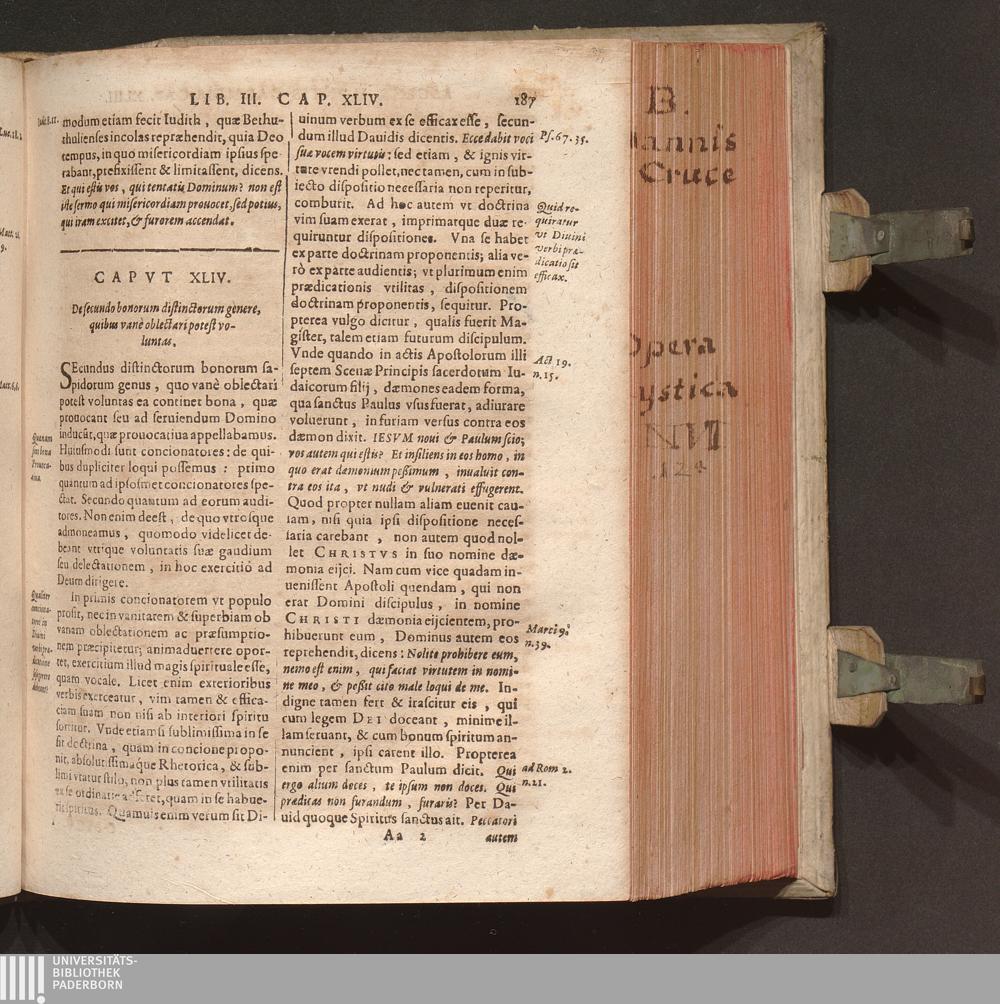 LIB. III. CAP. XLIV. 187
Iudit. 8. 11.
modum etiam fecit Iudith, quæ Bethu-
thulienses incolas repræhendit, quia Deo
tempus, in quo misericordiam ipsius spe-
rabant, prefixissent & limitassent, dicens.
Et qui estis vos, qui tentatis Dominum? non est
iste sermo qui misericordiam prouocet, sed potius,
qui iram excitet, & furorem accendat.
CAPVT XLIV.
De secundo bonorum distinctorum genere,
quibus vanè oblectari potest vo-
luntas.
SEcundus distinctorum bonorum sa-
pidorum genus, quo vanè oblectari
potest voluntas ea continet bona, quæ
prouocant seu ad seruiendum Domino
inducūt, quæ prouocatiua appellabamus.
Huiusmodi sunt concionatores: de qui-
bus dupliciter loqui possemus: primo
quantum ad ipsosmet concionatores spe-
ctat. Secundo quantum ad eorum audi-
tores. Non enim deest, de quo vtrosque
admoneamus, quomodo videlicet de-
beant vtrique voluntatis suæ gaudium
seu delectationem, in hoc exercitiò ad
Deum dirigere.
In primis concionatorem vt populo
prosit, nec in vanitatem & superbiam ob
vanam oblectationem ac præsumptio-
nem præcipitetur, animaduertere opor-
tet, exercitium illud magis spirituale esse,
quam vocale. Licet enim exterioribus
verbis exerceatur, vim tamen & effica-
ciam suam non nisi ab interiori spiritu
sortitur. Vnde etiam si sublimissima in se
sit doctrina, quam in concione propo-
nit, absolutissimaque Rhetorica, & sub-
limi vtatur stilo, non plus tamen vtilitatis
ex se ordinarie afferet, quam in se habue-
rit spiritus. Quamuis enim verum sit Di-
uinum verbum ex se efficax esse, secun-
dum illud Dauidis dicentis. Ecce dabit voci
suæ vocem virtutis: sed etiam, & ignis vir-
tute vrendi pollet, nec tamen, cum in sub-
iecto dispositio necessaria non reperitur,
comburit. Ad hoc autem vt doctrina
vim suam exerat, imprimatque duæ re-
quiruntur dispositiones. Vna se habet
ex parte doctrinam proponentis; alia ve-
rò ex parte audientis; vt plurimum enim
prædicationis vtilitas, dispositionem
doctrinam proponentis, sequitur. Pro-
pterea vulgo dicitur, qualis fuerit Ma-
gister, talem etiam futurum discipulum.
Vnde quando in actis Apostolorum illi
septem Scenæ Principis sacerdotum Iu-
daicorum filij, dæmones eadem forma,
qua sanctus Paulus vsus fuerat, adiurare
voluerunt, in furiam versus contra eos
dæmon dixit. IESVM noui & Paulum scio;
vos autem qui estis? Et insiliens in eos homo, in
quo erat dæmonium peßimum, inualuit con-
tra eos ita, vt nudi & vulnerati effugerent.
Quod propter nullam aliam euenit cau-
sam, nisi quia ipsi dispositione neces-
saria carebant, non autem quod nol-
let CHRISTVS in suo nomine dæ-
monia eijci. Nam cum vice quadam in-
uenissent Apostoli quendam, qui non
erat Domini discipulus, in nomine
CHRISTI dæmonia eijcientem, pro-
hibuerunt eum, Dominus autem eos
reprehendit, dicens: Nolite prohibere eum,
nemo est enim, qui faciat virtutem in nomi-
ne meo, & peßit cito male loqui de me. In-
digne tamen fert & irascitur eis, qui
cum legem DEI doceant, minime il-
lam seruant, & cum bonum spiritum an-
nuncient, ipsi carent illo. Propterea
enim per sanctum Paulum dicit. Qui
ergo alium doces, te ipsum non doces. Qui
prædicas non furandum, furaris? Per Da-
uid quoque Spiritus sanctus ait. Peccatori
Aa 2 autem
Quænam
sint bona
Prouoca-
tiua.
Ps. 67. 35.
Quid re-
quiratur
vt Diuini
verbi præ-
dicatio sit
efficax.
Act 19.
n. 15.
Marci 9.
n. 39.
ad Rom 2.
n. 21.
B.
annis
Cruce
Opera
ystica
NVI
124
UNIVERSITÄTS-
BIBLIOTHEK
PADERBORN